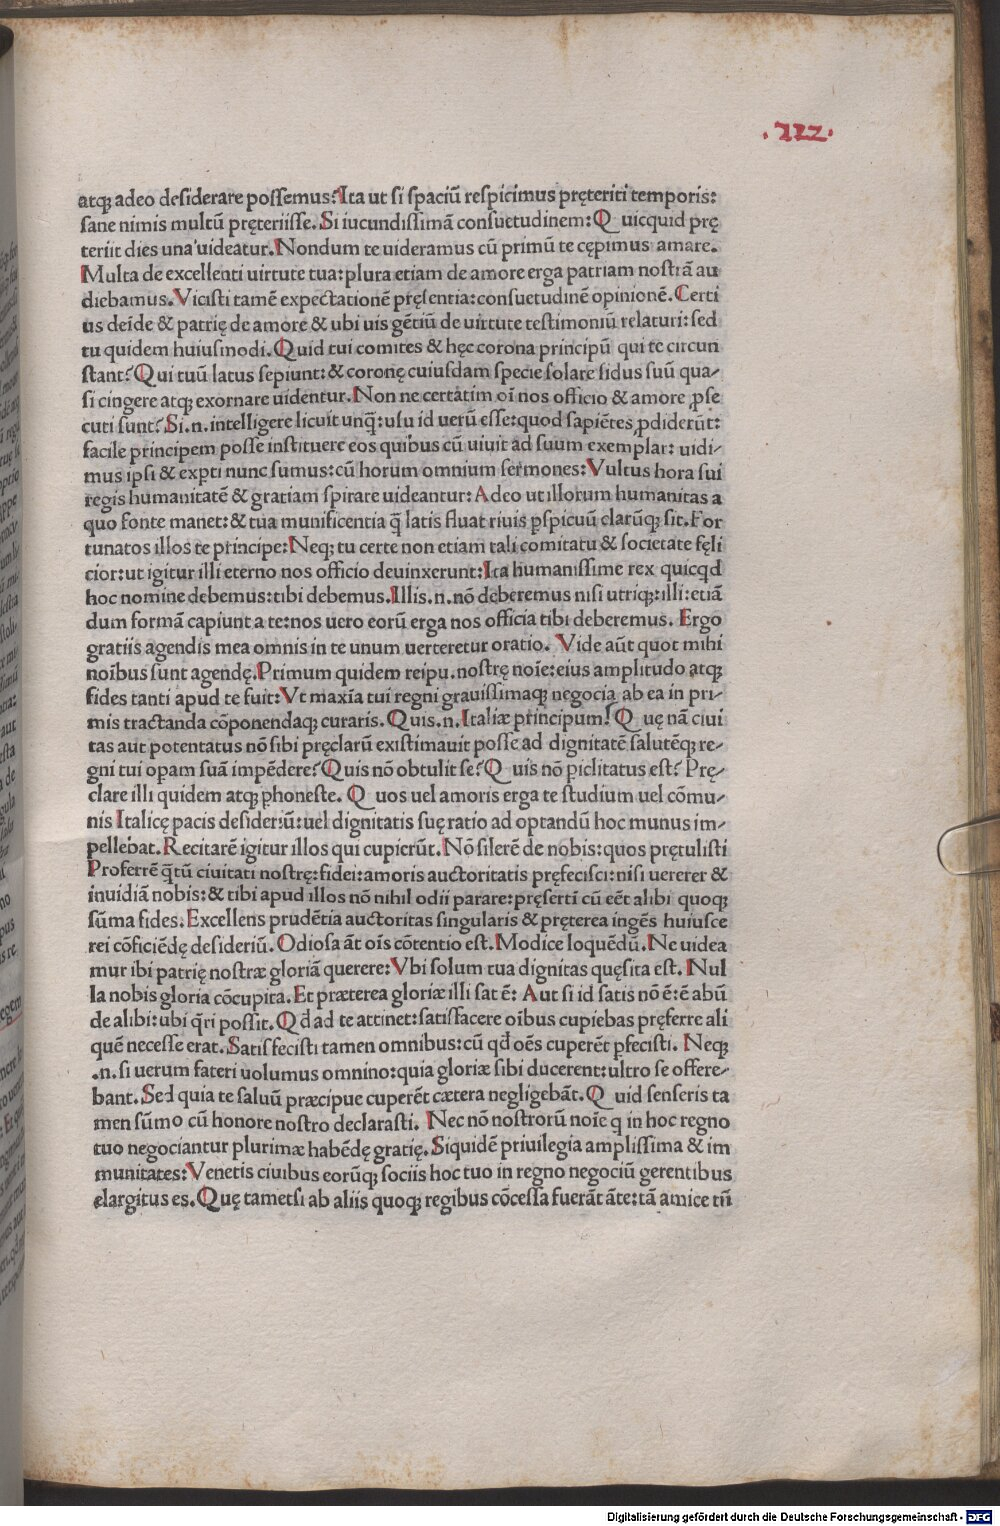 .222.
atq; adeo desiderare possemus: Ita ut si spaciū respicimus pręteriti temporis:
sane nimis multū pręteriisse. Si iucundissimā consuetudinem: Q uicquid prę
teriit dies una uideatur. Nondum te uideramus cū primū te cępimus amare.
Multa de excellenti uirtute tua: plura etiam de amore erga patriam nostrā au
diebamus. Vicisti tamē expectationē pręsentia: consuetudinē opinionē. Certi
us deīde & patrię de amore & ubi uis gētiū de uirtute testimoniū relaturi: sed
tu quidem huiusmodi. Quid tui comites & hęc corona principū qui te circun
stant? Qui tuū latus sepiunt: & coronę cuiusdam specie solare sidus suū qua-
si cingere atq; exornare uidentur. Non ne certatim oī nos officio & amore ꝓse
cuti sunt? Si .n. intelligere licuit unq̄: usu id uerū esse: quod sapiētes ꝓdiderūt:
facile principem posse instituere eos quibus cū uiuit ad suum exemplar: uidi-
mus ipsi & expti nunc sumus: cū horum omnium sermones: Vultus hora sui
regis humanitatē & gratiam spirare uideantur: Adeo ut illorum humanitas a
quo fonte manet: & tua munificentia q̄ latis fluat riuis ꝑspicuū clarūq; sit. For
tunatos illos te principe: Neq; tu certe non etiam tali comitatu & societate fęli
cior: ut igitur illi eterno nos officio deuinxerunt: Ita humanissime rex quicqd
hoc nomine debemus: tibi debemus. Illis .n. nō deberemus nisi utriq;: illi: etiā
dum formā capiunt a te: nos uero eorū erga nos officia tibi deberemus. Ergo
gratiis agendis mea omnis in te unum uerteretur oratio. Vide aūt quot mihi
noībus sunt agendę. Primum quidem reipu. nostrę noīe: eius amplitudo atq;
fides tanti apud te fuit: Vt maxīa tui regni grauissimaq; negocia ab ea in pri-
mis tractanda cōponendaq; curaris. Quis .n. Italiæ principum? Q uę nā ciui
tas aut potentatus nō sibi pręclarū existimauit posse ad dignitatē salutēq; re-
gni tui opam suā impēdere? Quis nō obtulit se? Q uis nō piclitatus est? Prę-
clare illi quidem atq; phoneste. Q uos uel amoris erga te studium uel cōmu-
nis Italicę pacis desideriū: uel dignitatis suę ratio ad optandū hoc munus im-
pellebat. Recitarē igitur illos qui cupierūt. Nō silerē de nobis: quos prętulisti
Proferrē q̄tū ciuitati nostrę: fidei: amoris auctoritatis pręfecisci: nisi uererer &
inuidiā nobis: & tibi apud illos nō nihil odii parare: pręserti cū eēt alibi quoq;
sūma fides. Excellens prudētia auctoritas singularis & pręterea ingēs huiusce
rei cōficiēdę desideriū. Odiosa āt oīs cōtentio est. Modice loquēdū. Ne uidea
mur ibi patrię nostræ gloriā querere: Vbi solum tua dignitas quęsita est. Nul
la nobis gloria cōcupita. Et præterea gloriæ illi sat ē: Aut si id satis nō ē: ē abū
de alibi: ubi q̄ri possit. Qđ ad te attinet: satisfacere oībus cupiebas pręferre ali
quē necesse erat. Satisfecisti tamen omnibus: cū qđ oēs cuperēt pfecisti. Neq;
.n. si uerum fateri uolumus omnino: quia gloriæ sibi ducerent: ultro se offere-
bant. Sed quia te saluū præcipue cuperēt cætera negligebāt. Q uid senseris ta
men sūmo cū honore nostro declarasti. Nec nō nostrorū noīe q in hoc regno
tuo negociantur plurimæ habēdę gratię. Siquidē priuilegia amplissima & im
munitates: Venetis ciuibus eorūq; sociis hoc tuo in regno negociū gerentibus
elargitus es. Quę tametsi ab aliis quoq; regibus cōcessa fuerāt āte: tā amice tn̄
Digitalisierung gefördert durch die Deutsche Forschungsgemeinschaft - DFG